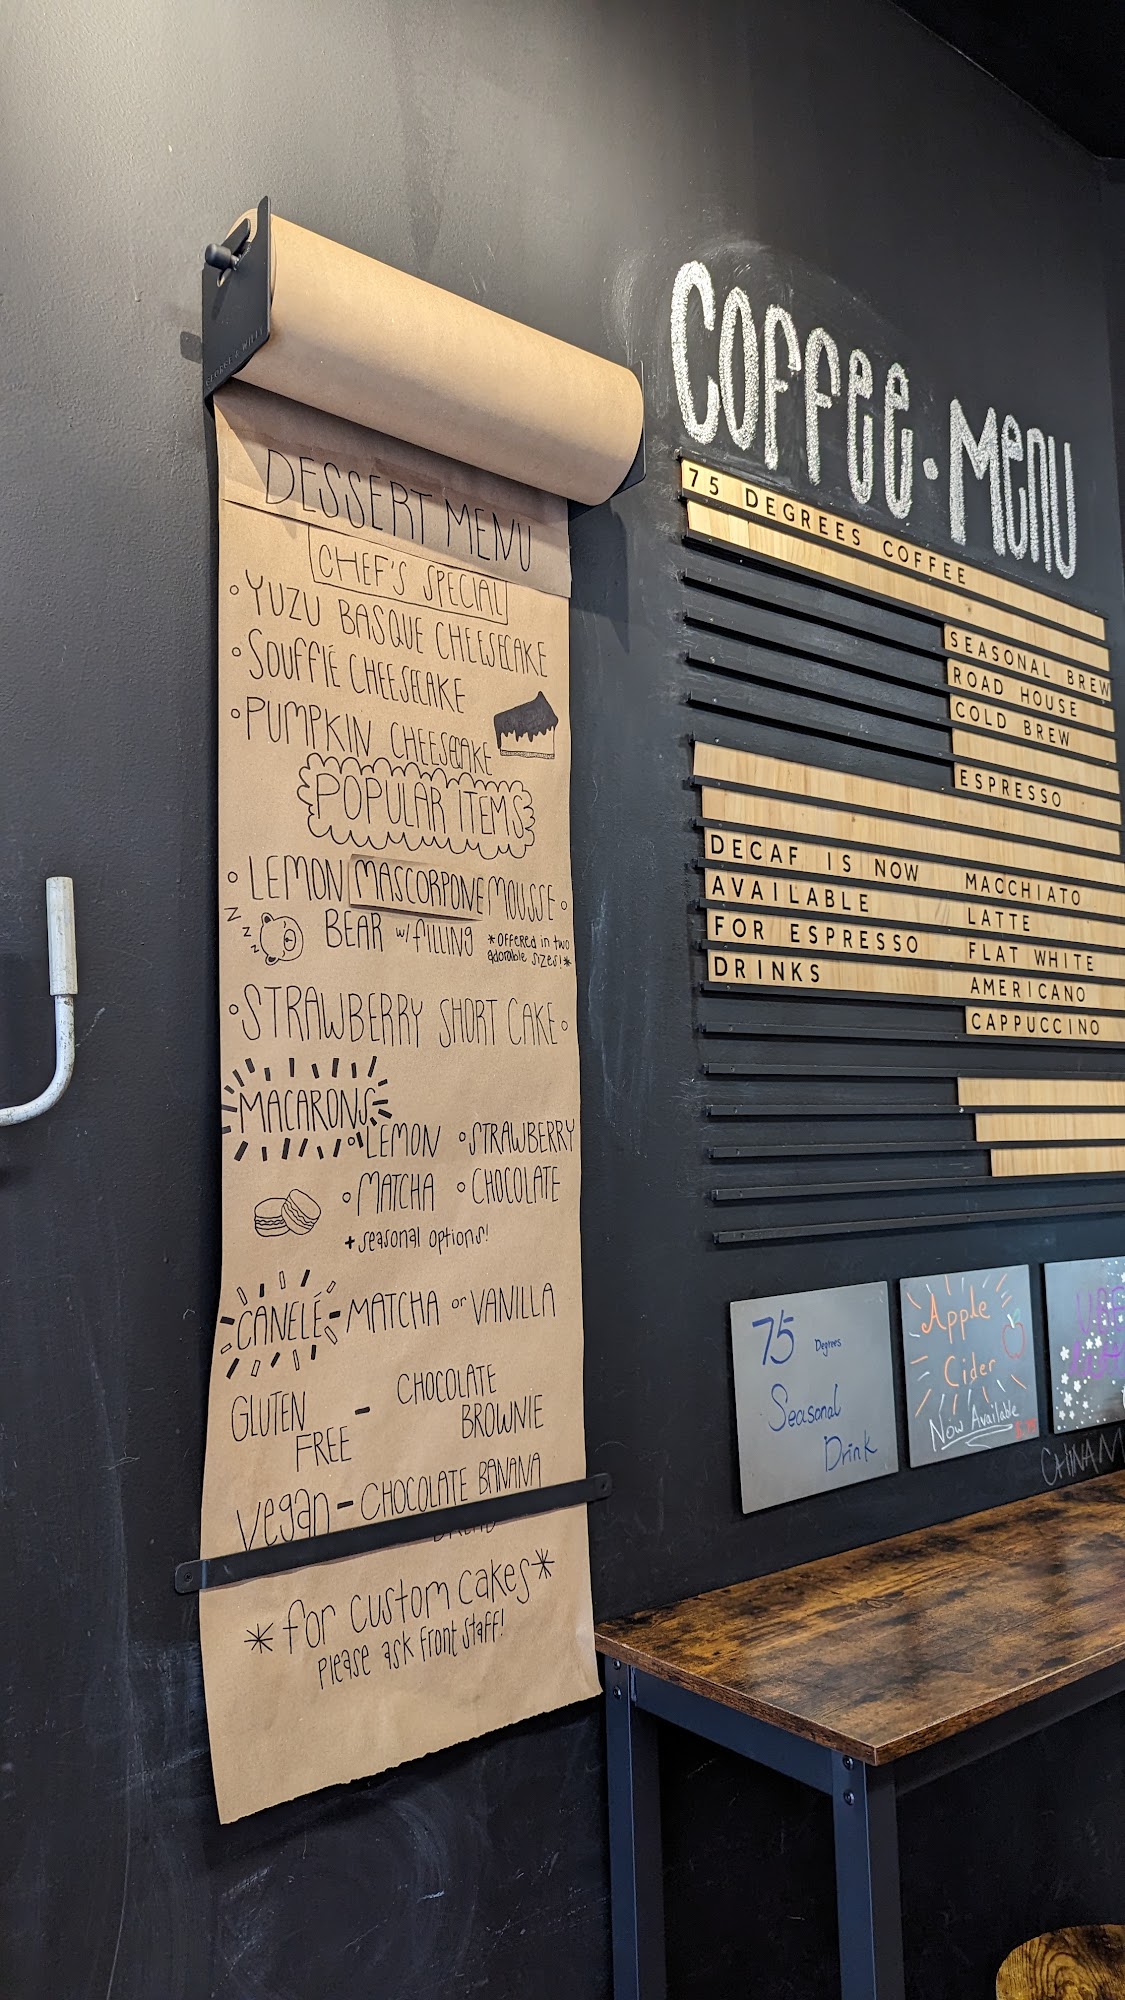 GEORGE & WILLY
DESSERT MENU
CHEF'S SPECIAL
YUZU BASQUE CHEESECAKE
SOUFFLÉ CHEESECAKE
PUMPKIN CHEESECAKE
POPULAR ITEMS
LEMON MASCORPONE MOUSSE
BEAR w/ filling
*offered in two
adorable sizes!*
z z z
STRAWBERRY SHORT CAKE
MACARONS
LEMON
STRAWBERRY
MATCHA
CHOCOLATE
+ seasonal options!
CANELÉ - MATCHA or VANILLA
GLUTEN FREE - CHOCOLATE BROWNIE
vegan - CHOCOLATE BANANA
BREAD
* for custom cakes *
please ask front staff!
COFFEE · MENU
75 DEGREES COFFEE
SEASONAL BREW
ROAD HOUSE
COLD BREW
ESPRESSO
DECAF IS NOW
AVAILABLE
FOR ESPRESSO
DRINKS
MACCHIATO
LATTE
FLAT WHITE
AMERICANO
CAPPUCCINO
75 Degrees
Seasonal
Drink
Apple
Cider
Now Available
CHINAM